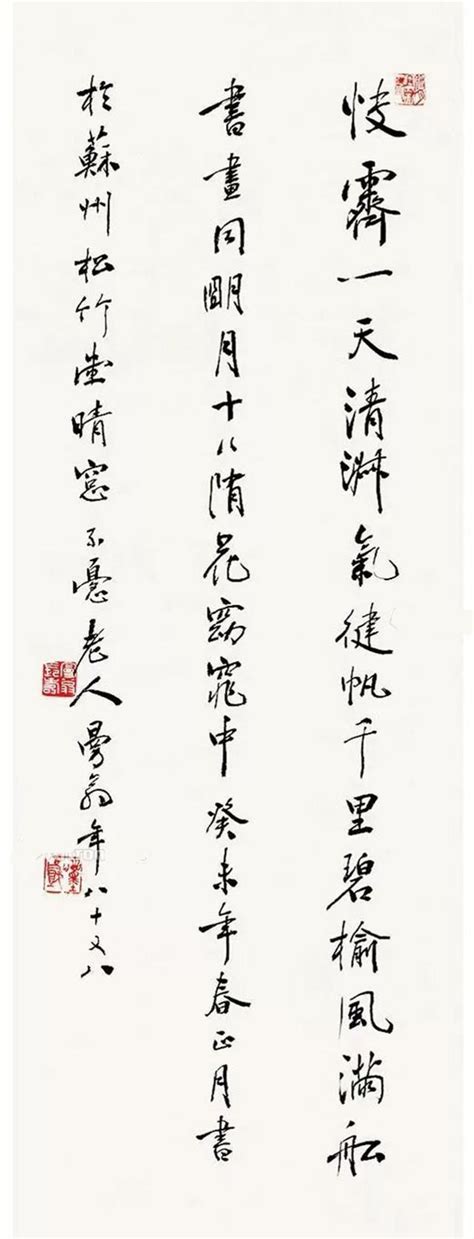 快霽一天清淑氣健帆千里碧榆風滿舩
書畫同朙月十八隋花窈窕中癸未年春正月書
於蘇州松竹堂晴窓不憂老人曼翁年八十又八